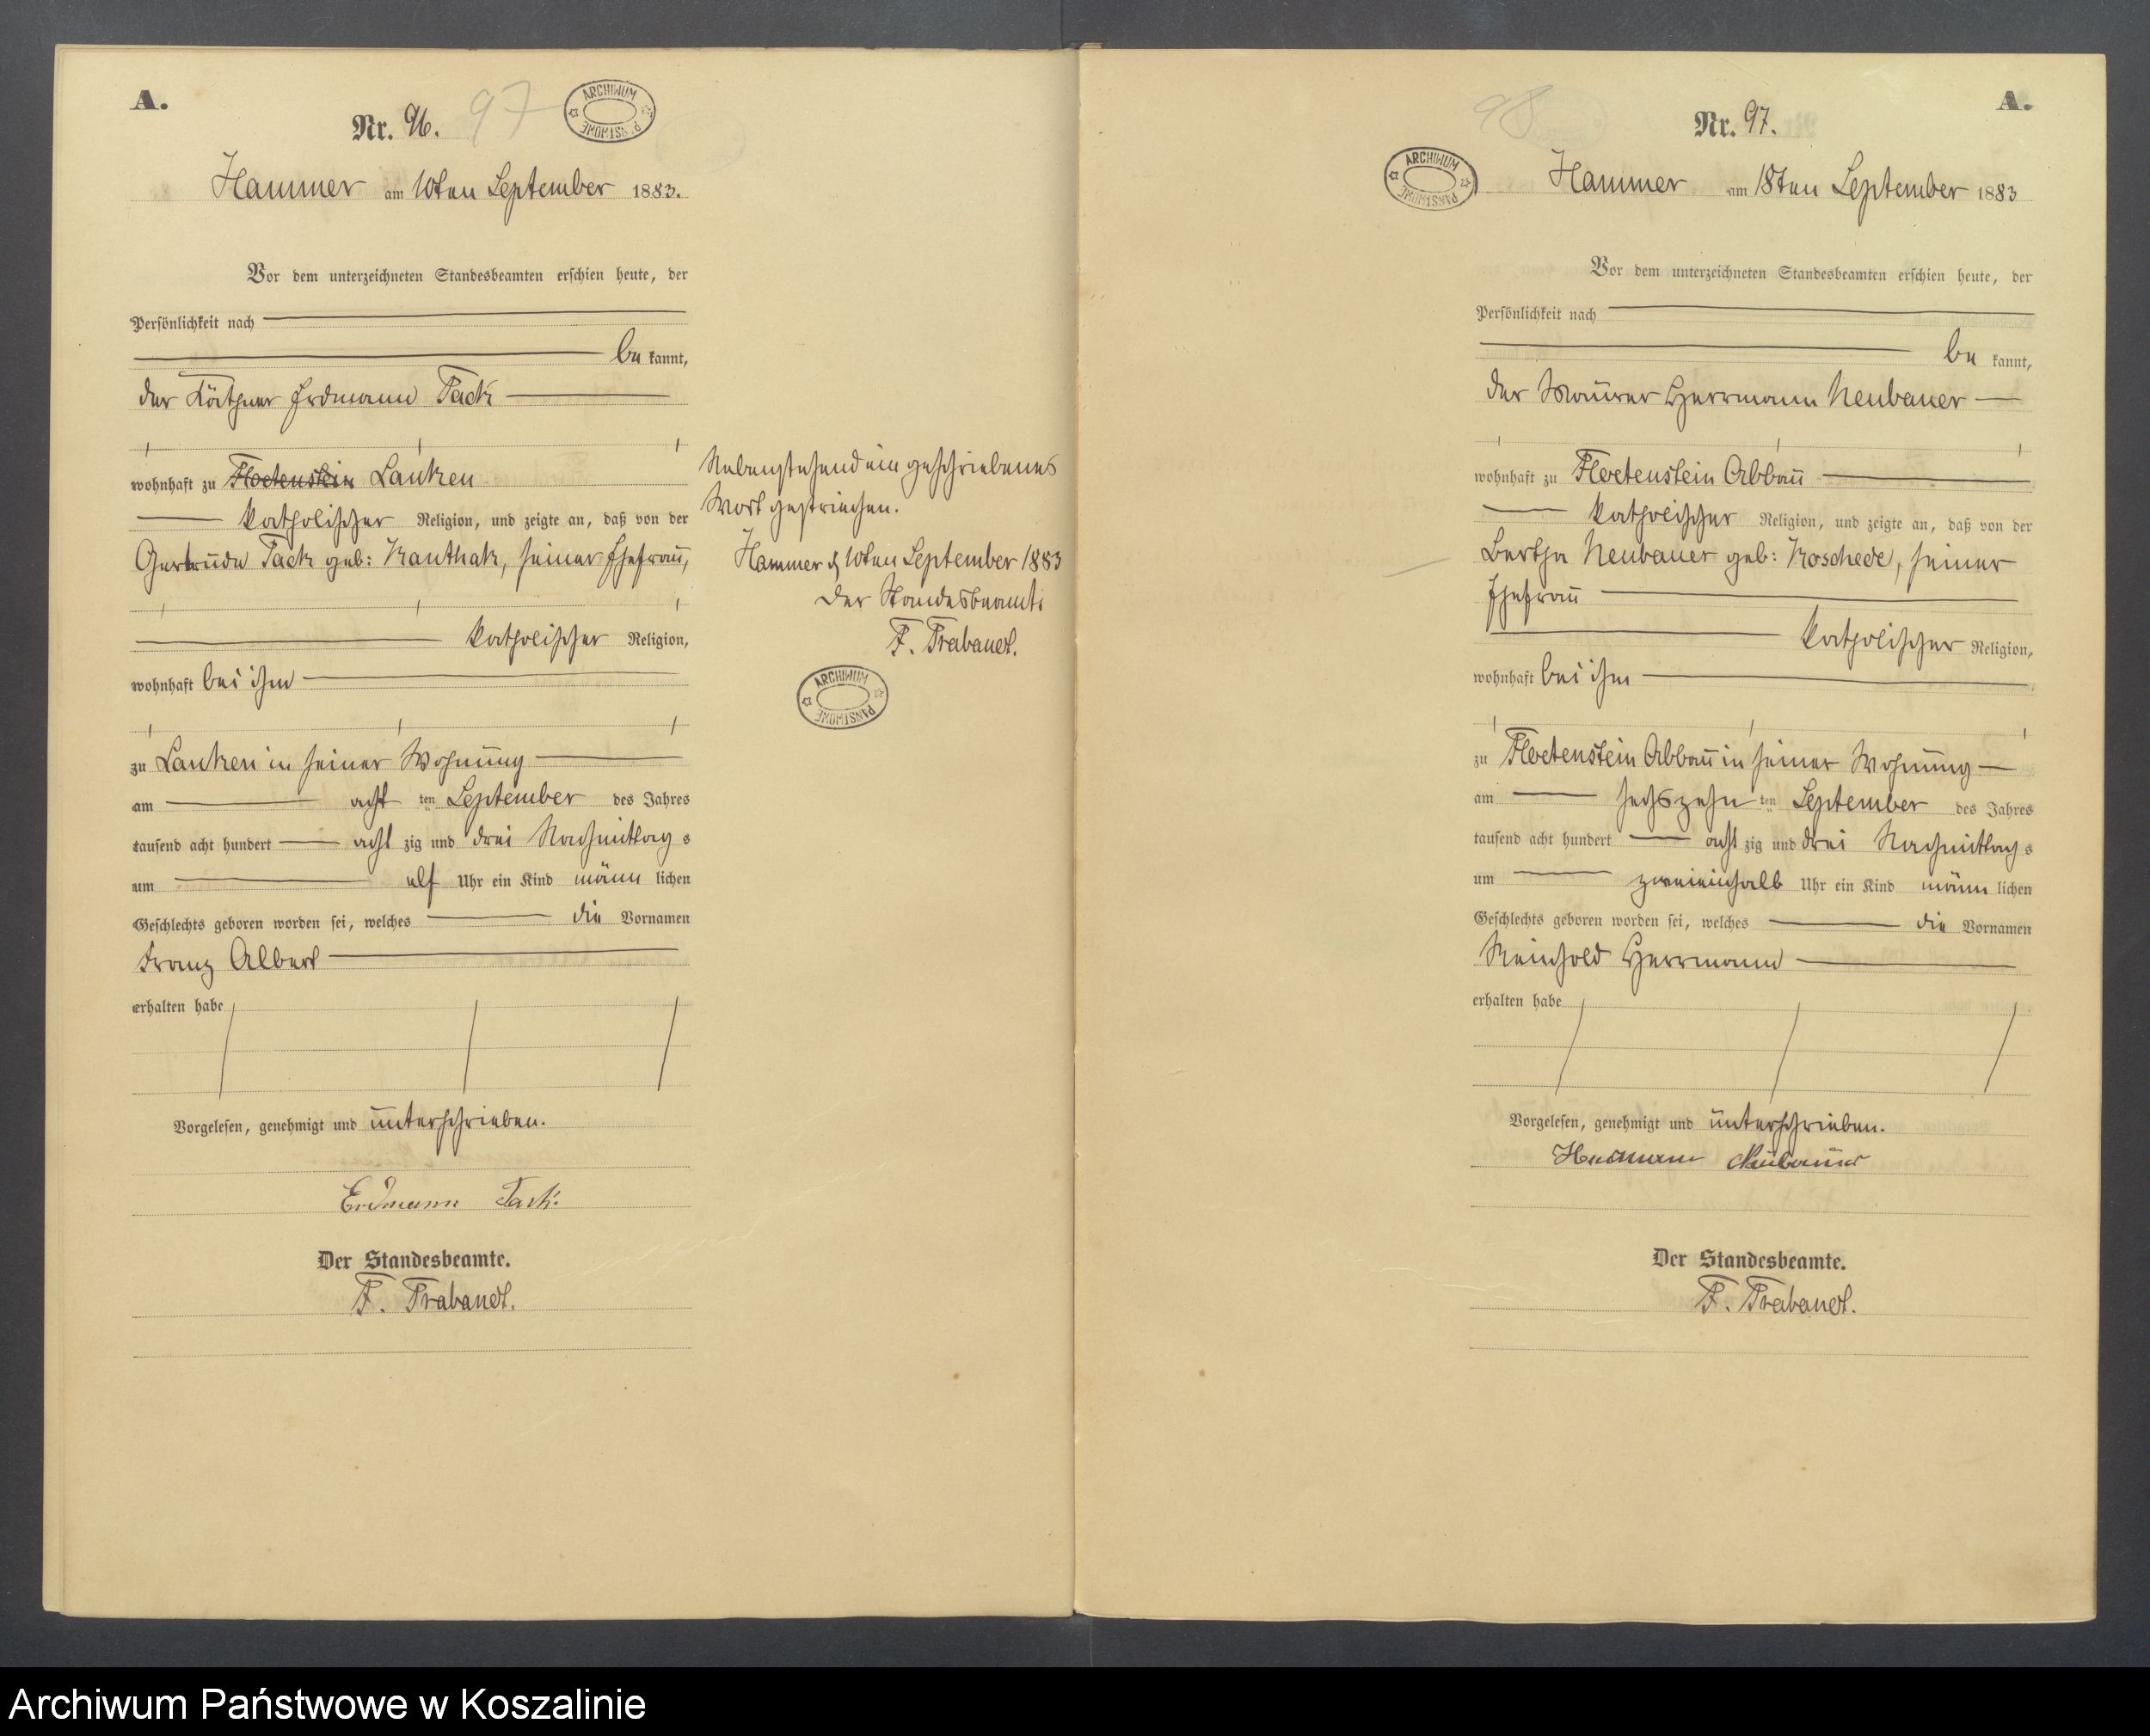 A.
Nr. 96.
97
ARCHIWUM PAŃSTWOWE
Hammer am 10ten September 1883.
Vor dem unterzeichneten Standesbeamten erschien heute, der
Persönlichkeit nach
be kannt,
der Käthner Erdmann Tack
wohnhaft zu Floetenstein Lanken
katholischer Religion, und zeigte an, daß von der
Gertrude Tack geb: Kanthak, seiner Ehefrau,
katholischer Religion,
wohnhaft bei ihm
zu Lanken in seiner Wohnung
am acht ten September des Jahres
tausend acht hundert acht zig und drei Nachmittag s
um elf Uhr ein Kind männ lichen
Geschlechts geboren worden sei, welches die Vornamen
Franz Albert
erhalten habe
Vorgelesen, genehmigt und unterschrieben.
Erdmann Tack.
Der Standesbeamte.
F. Trabandt.
Nebenstehend ein geschriebenes
Wort gestrichen.
Hammer d 10ten September 1883
Der Standesbeamte
F. Trabandt.
ARCHIWUM PAŃSTWOWE
A.
98
Nr. 97.
ARCHIWUM PAŃSTWOWE
Hammer am 18ten September 1883
Vor dem unterzeichneten Standesbeamten erschien heute, der
Persönlichkeit nach
be kannt,
der Maurer Herrmann Neubauer
wohnhaft zu Floetenstein Abbau
katholischer Religion, und zeigte an, daß von der
Bertha Neubauer geb: Koschede, seiner
Ehefrau
katholischer Religion,
wohnhaft bei ihm
zu Floetenstein Abbau in seiner Wohnung
am sechszehn ten September des Jahres
tausend acht hundert acht zig und drei Nachmittag s
um zweieinhalb Uhr ein Kind männ lichen
Geschlechts geboren worden sei, welches die Vornamen
Reinhold Herrmann
erhalten habe
Vorgelesen, genehmigt und unterschrieben.
Hermann Neubauer
Der Standesbeamte.
F. Trabandt.
Archiwum Państwowe w Koszalinie